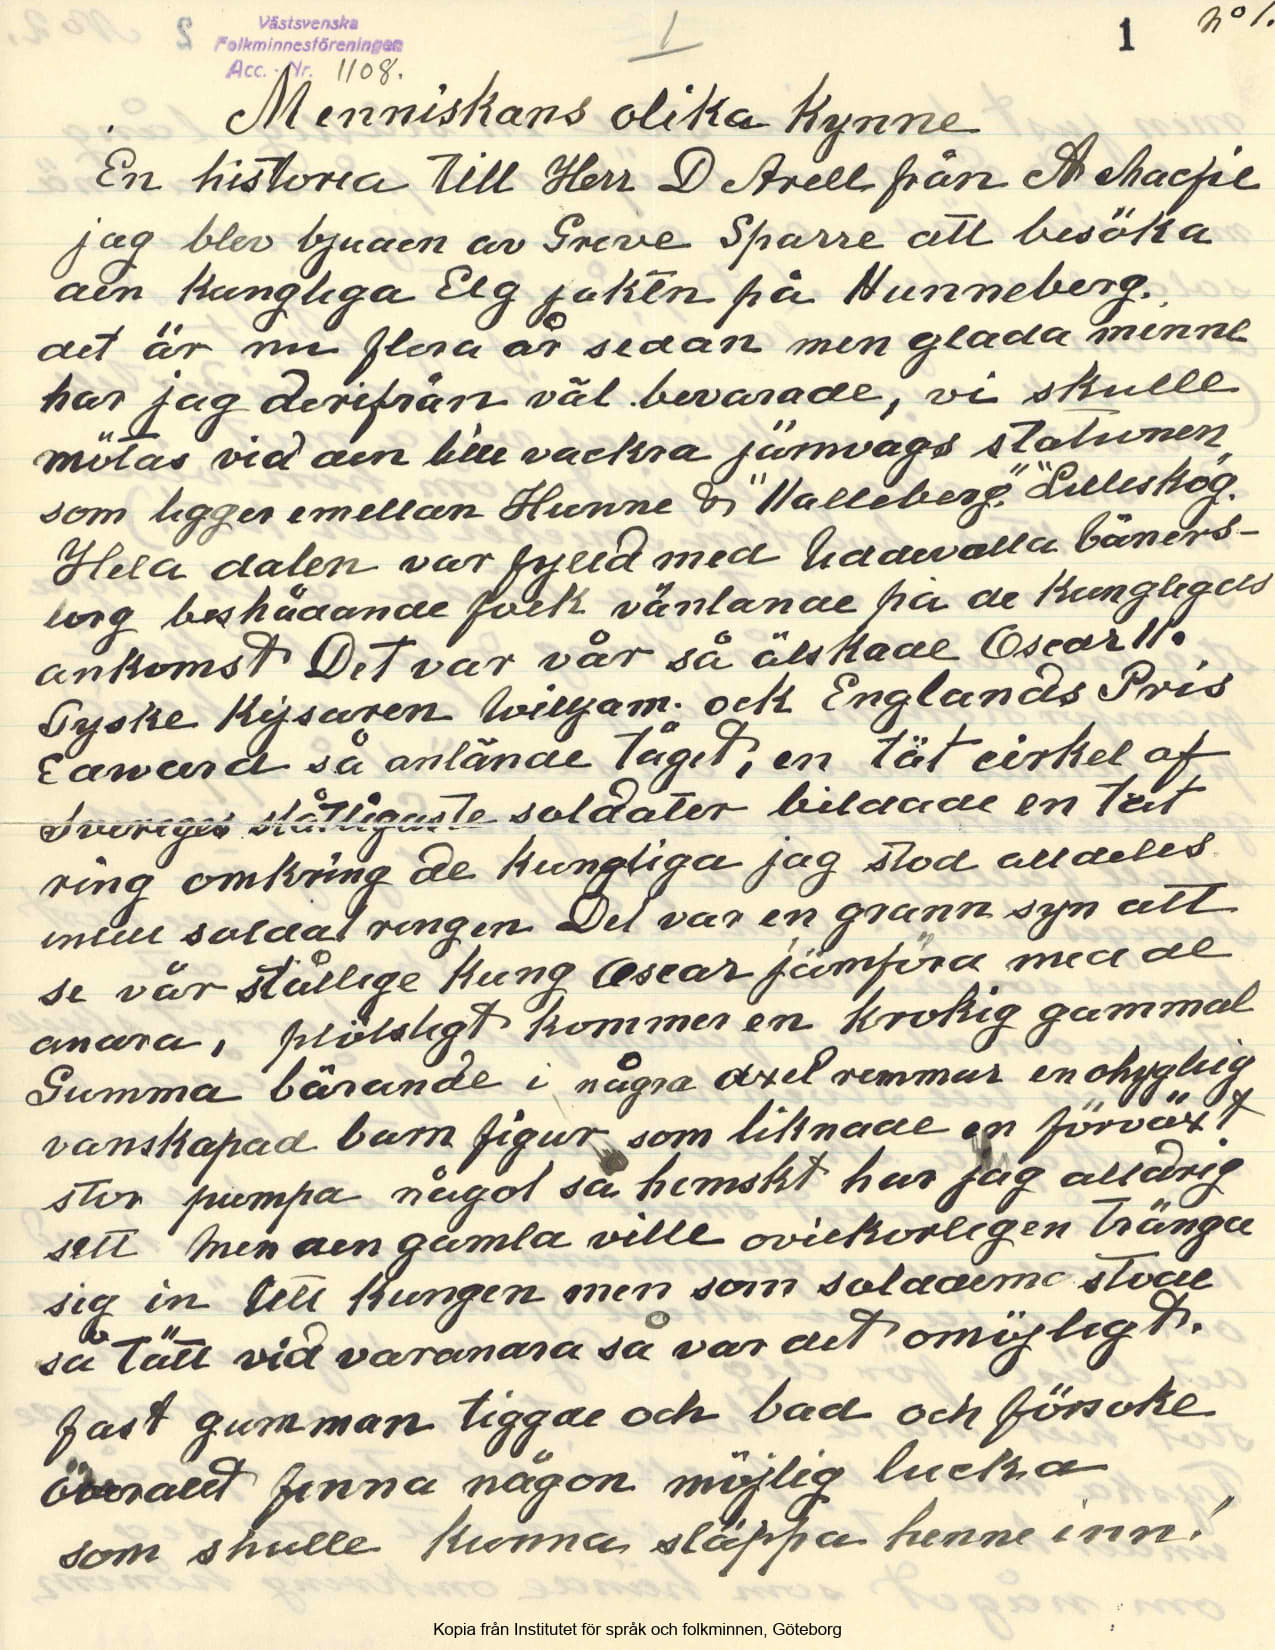 Västsvenska
Folkminnesföreningen
Acc. - Nr. 1108.
1
1
No 1.
Menniskans olika Kynne
En historia till Herr D Arell från A Macfie
jag blev bjuden av Greve Sparre att besöka
den Kungliga Elg jakten på Hunneberg.
det är nu flera år sedan men glada minne
har jag derifrån väl bevarade, vi skulle
mötas vid den lille vackra järnvags stationen
som ligger emellan Hunne & "Halleberg." "Lilleskog.
Hela dalen var fylld med Uddevalla Väners-
borg beskådande folk väntande på de Kungligas
ankomst Det var vår så älskade Oscar II.
Tyske Kejsaren Willyam. ock Englands Pris
Edward så anlände tåget, en tät cirkel af
Sveriges ståtligaste soldater bildade en tät
ring omkring de kungliga jag stod alldeles
intill soldat ringen Det var en grann syn att
se vår ståtlige Kung Oscar jämföra med de
andra, plötsligt kommer en krokig gammal
Gumma bärande i några axel remmar en ohygglig
vanskapad barn figur som liknade en förväxt
stor pumpa något så hemskt har jag alldrig
sett Men den gamla ville ovilkorligen tränga
sig in till Kungen men som soldaterna stode
så tätt vid varandra så var det omöjligt.
fast gumman tiggde och bad och försoke
överallt finna någon möjlig lucka
som skulle kunna släppa henne inn!
Kopia från Institutet för språk och folkminnen, Göteborg